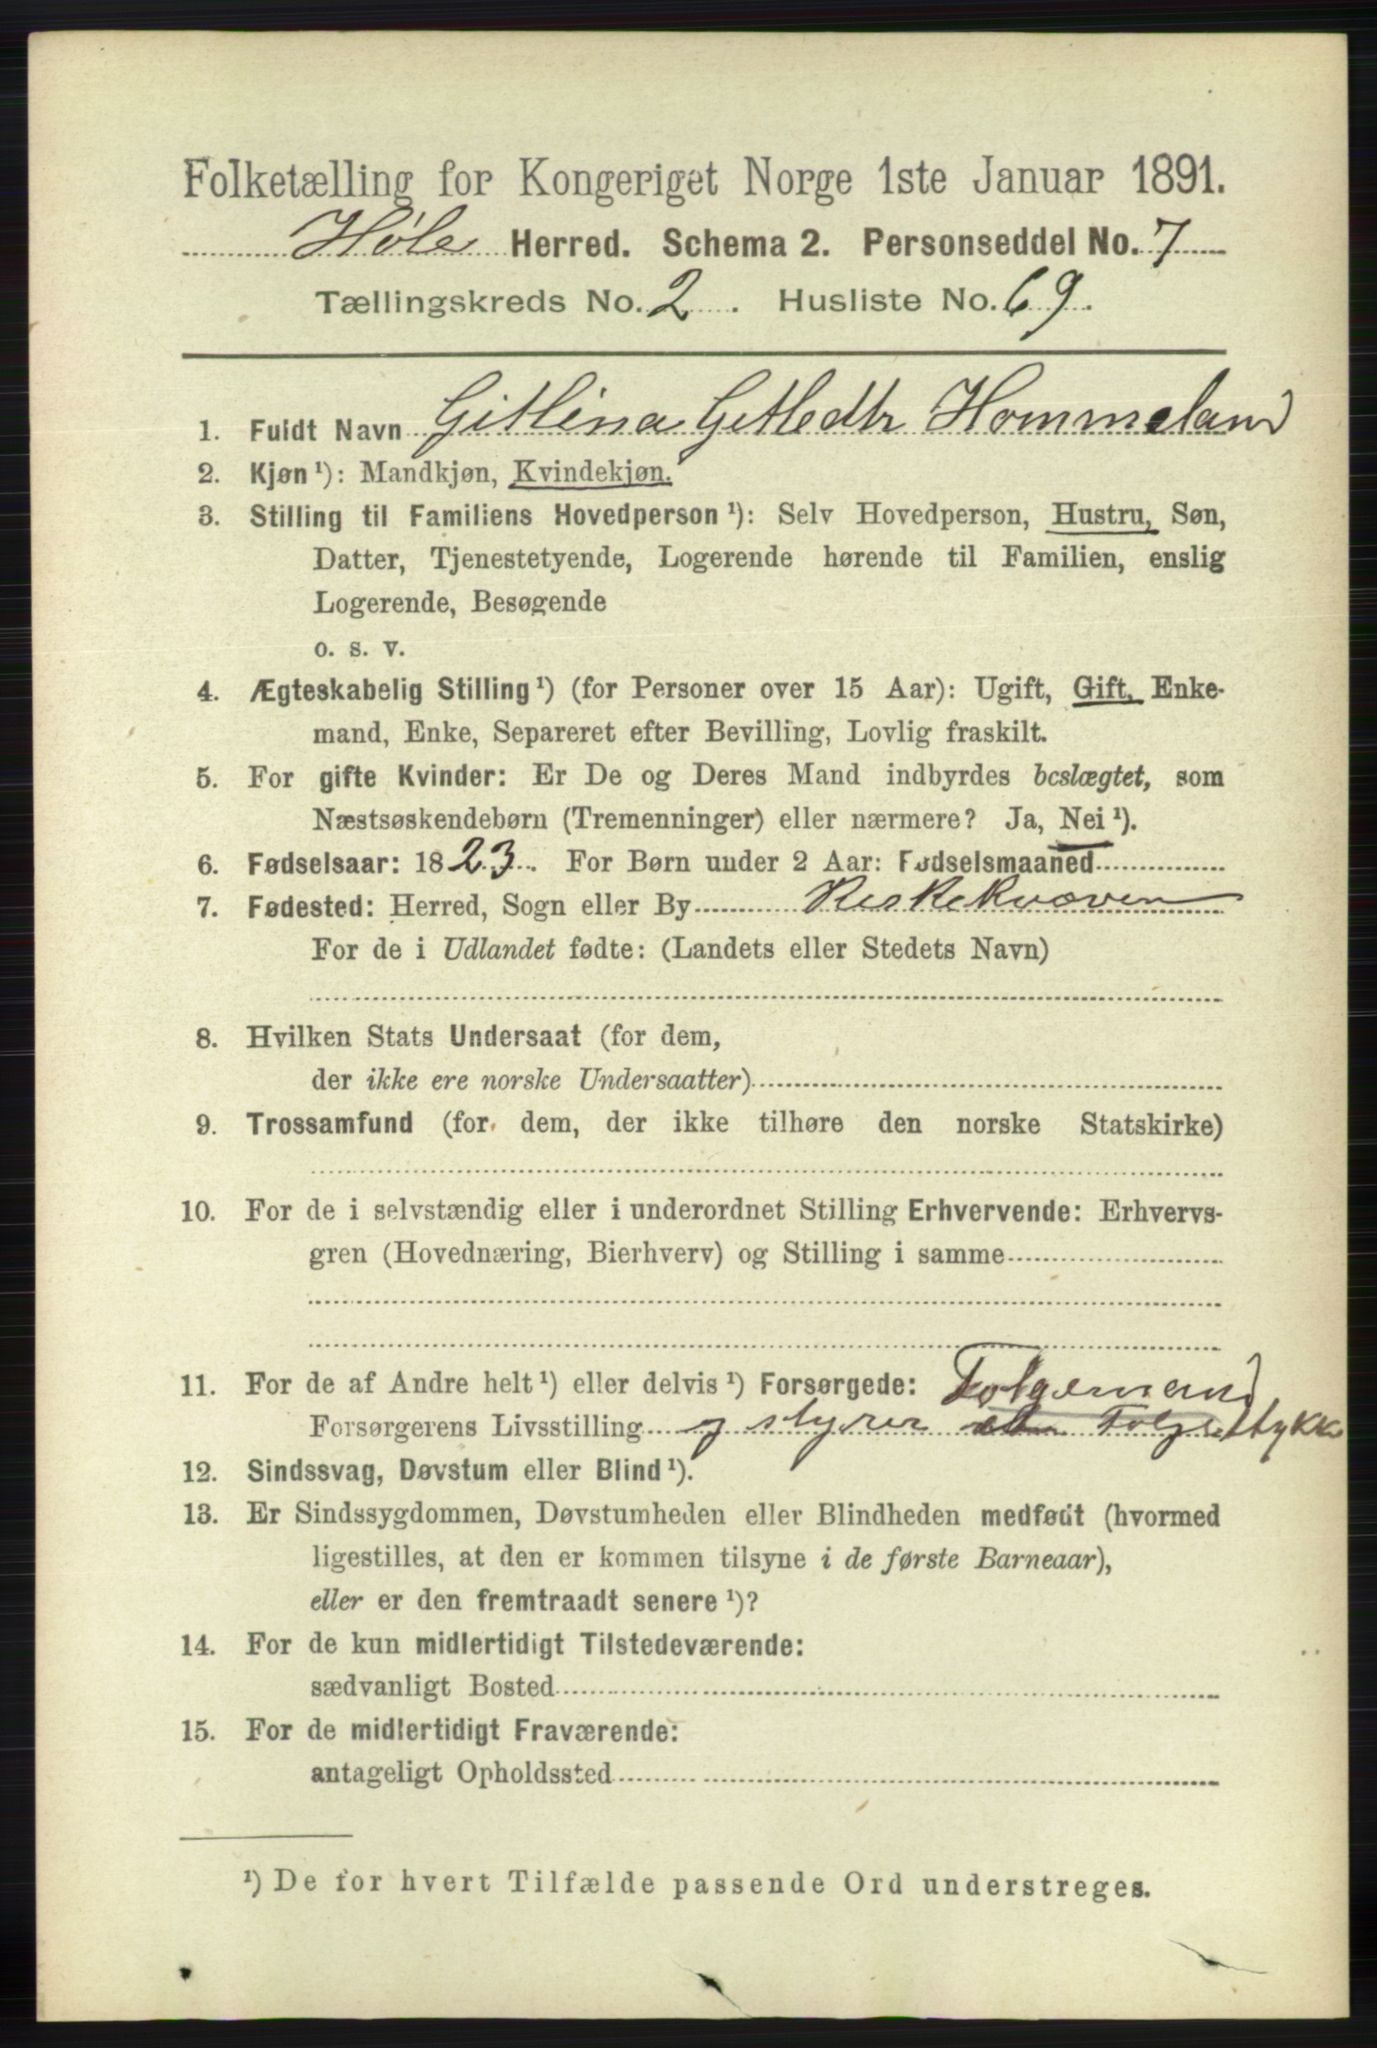 Folketælling for Kongeriget Norge 1ste Januar 1891.
Høle Herred. Schema 2. Personseddel No. 7
Tællingskreds No. 2. Husliste No. 69.
1. Fuldt Navn Gitlina Getledtr Hommeland
2. Kjøn ¹): Mandkjøn, Kvindekjøn.
3. Stilling til Familiens Hovedperson ¹): Selv Hovedperson, Hustru, Søn,
Datter, Tjenestetyende, Logerende hørende til Familien, enslig
Logerende, Besøgende
o. s. v.
4. Ægteskabelig Stilling ¹) (for Personer over 15 Aar): Ugift, Gift, Enke-
mand, Enke, Separeret efter Bevilling, Lovlig fraskilt.
5. For gifte Kvinder: Er De og Deres Mand indbyrdes beslægtet, som
Næstsøskendebørn (Tremenninger) eller nærmere? Ja, Nei ¹).
6. Fødselsaar: 1823. For Børn under 2 Aar: Fødselsmaaned
7. Fødested: Herred, Sogn eller By Heskekvæven
For de i Udlandet fødte: (Landets eller Stedets Navn)
8. Hvilken Stats Undersaat (for dem,
der ikke ere norske Undersaatter)
9. Trossamfund (for dem, der ikke tilhøre den norske Statskirke)
10. For de i selvstændig eller i underordnet Stilling Erhvervende: Erhvervs-
gren (Hovednæring, Bierhverv) og Stilling i samme
11. For de af Andre helt ¹) eller delvis ¹) Forsørgede: Folgemand
Forsørgerens Livsstilling og styrer Folgestykke
12. Sindssvag, Døvstum eller Blind ¹).
13. Er Sindssygdommen, Døvstumheden eller Blindheden medfødt (hvormed
ligestilles, at den er kommen tilsyne i de første Barneaar),
eller er den fremtraadt senere ¹)?
14. For de kun midlertidigt Tilstedeværende:
sædvanligt Bosted
15. For de midlertidigt Fraværende:
antageligt Opholdssted
¹) De for hvert Tilfælde passende Ord understreges.